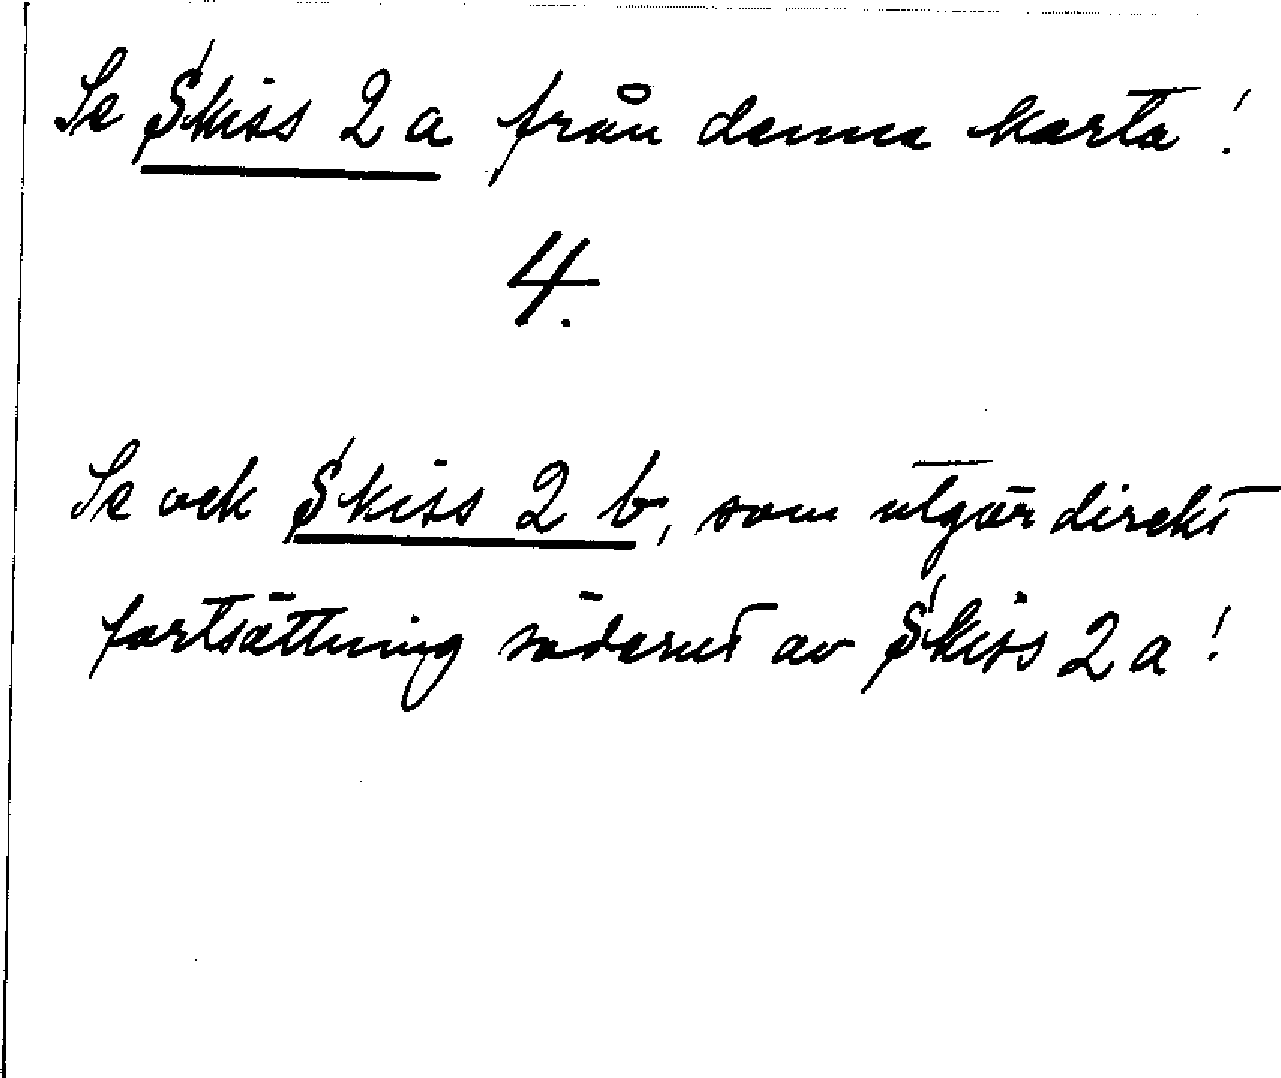 Se Skiss 2a från denna karta!
4.
Se ock Skiss 2 b, som utgör direkt
fortsättning söderut av Skiss 2a!